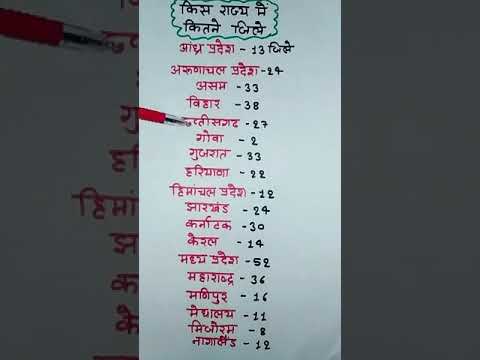 किस राज्य मे
कितने जिले
आंध्र प्रदेश - 13 जिले
अरुणाचल प्रदेश - 24
असम - 33
बिहार - 38
छत्तीसगढ - 27
गोवा - 2
गुजरात - 33
हरियाणा - 22
हिमांचल प्रदेश - 12
झारखंड - 24
कर्नाटक - 30
केरल - 14
मध्य प्रदेश - 52
महाराष्ट्र - 36
मणिपुर - 16
मेघालय - 11
मिजोरम - 8
नागालैंड - 12